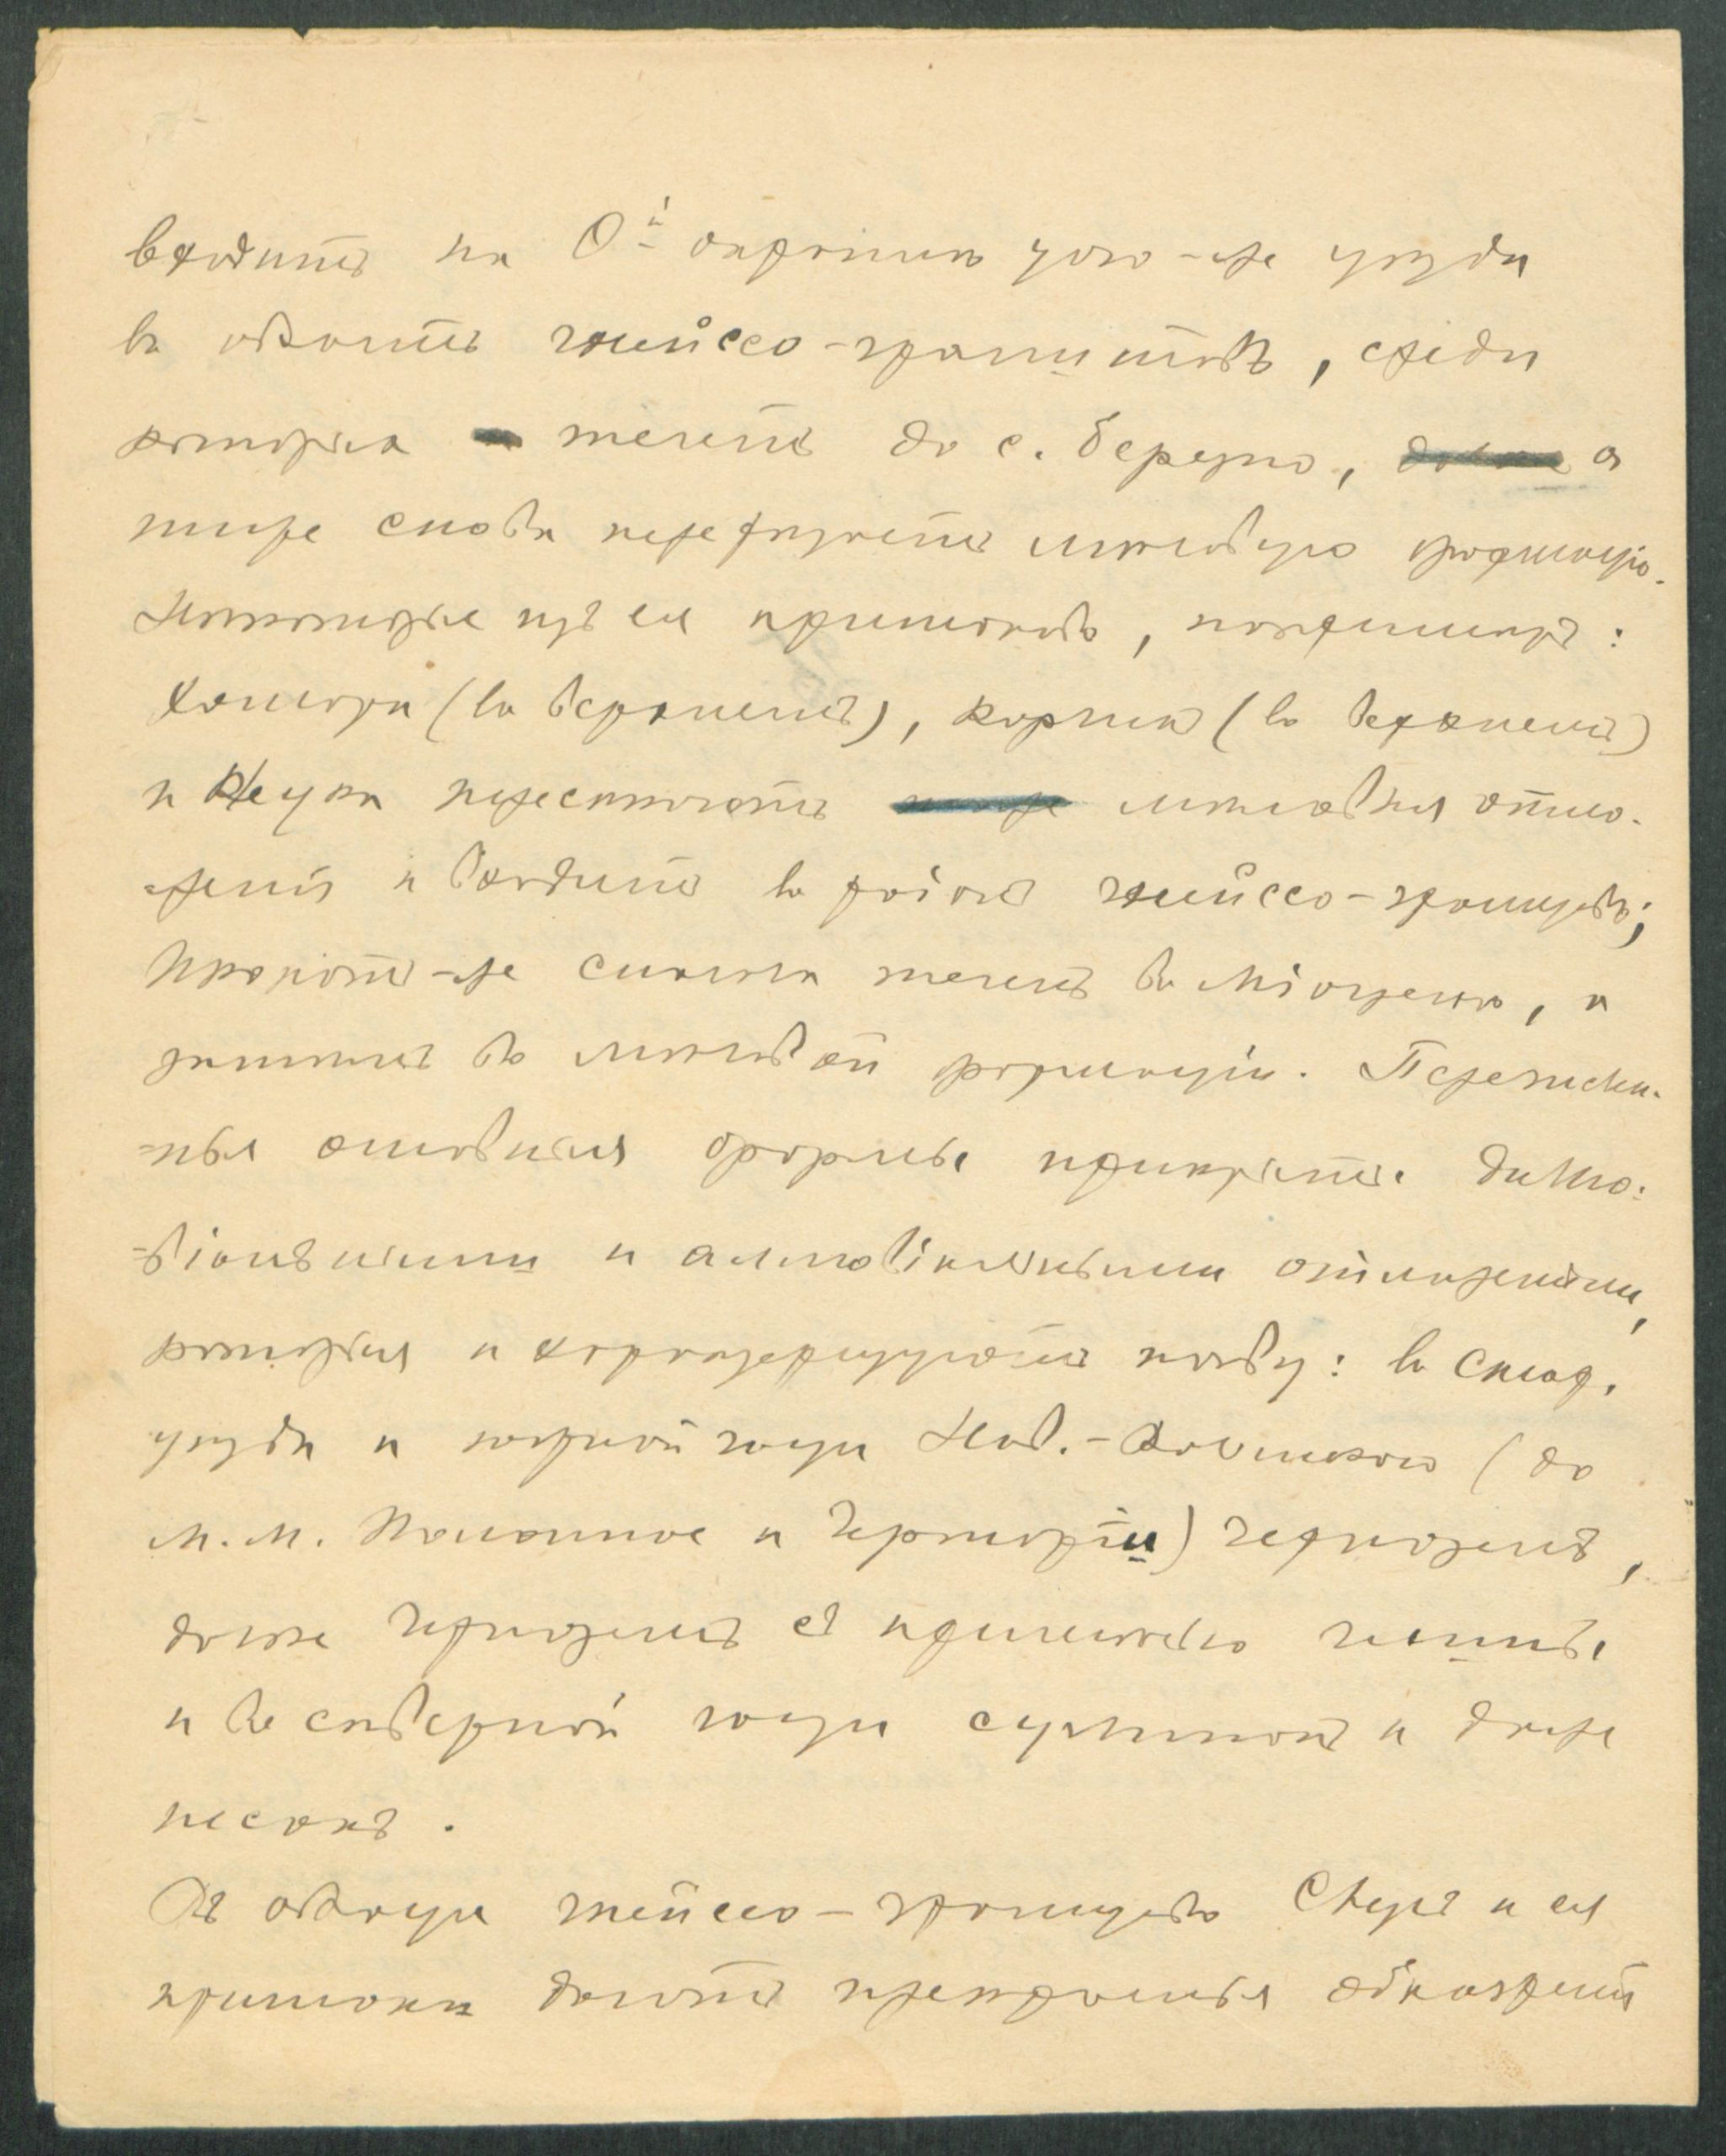 входитъ на Ой окраинѣ того-же уѣзда
въ область гнейссо-гранитовъ, среди
которыхъ течетъ до с. Березно, а
ниже снова перерѣзаетъ мѣловую формацію.
Нѣкоторые изъ ея притоковъ, напримѣръ:
Хомора (въ верховьяхъ), Корчикъ (въ верховьяхъ)
и Случь пересѣкаютъ мѣловыя отло-
женія и входятъ въ районъ гнейссо-гранитовъ;
же сначала течетъ въ міоценѣ, а
затѣмъ въ мѣловой формаціи. Перечислен-
ныя основныя формы прикрыты дилю-
=віальными и аллювіальными отложеніями,
которыя и характеризуютъ почву: въ
уѣзда и южной части Нов.-Волынского (до
м.м. Полонное и Чарторіи) черноземъ,
далѣе черноземъ съ примѣсью глины
и въ сѣверной части суглинокъ и даже
песокъ.
Въ области гнейссо-гранитовъ Случь и ея
притоки даютъ прекрасныя обнаженія